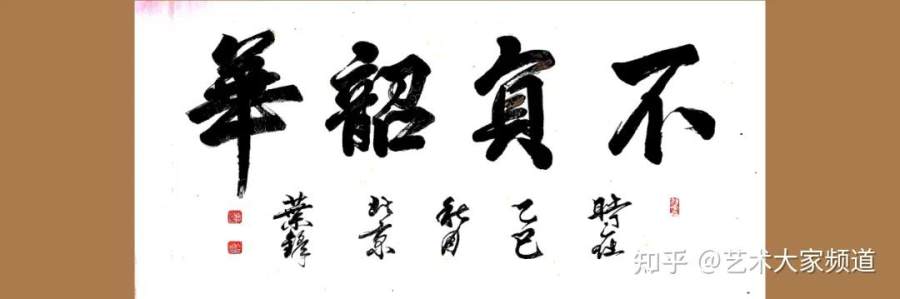 不負韶華
時在乙巳秋月北京葉鋒
知乎 @艺术大家频道